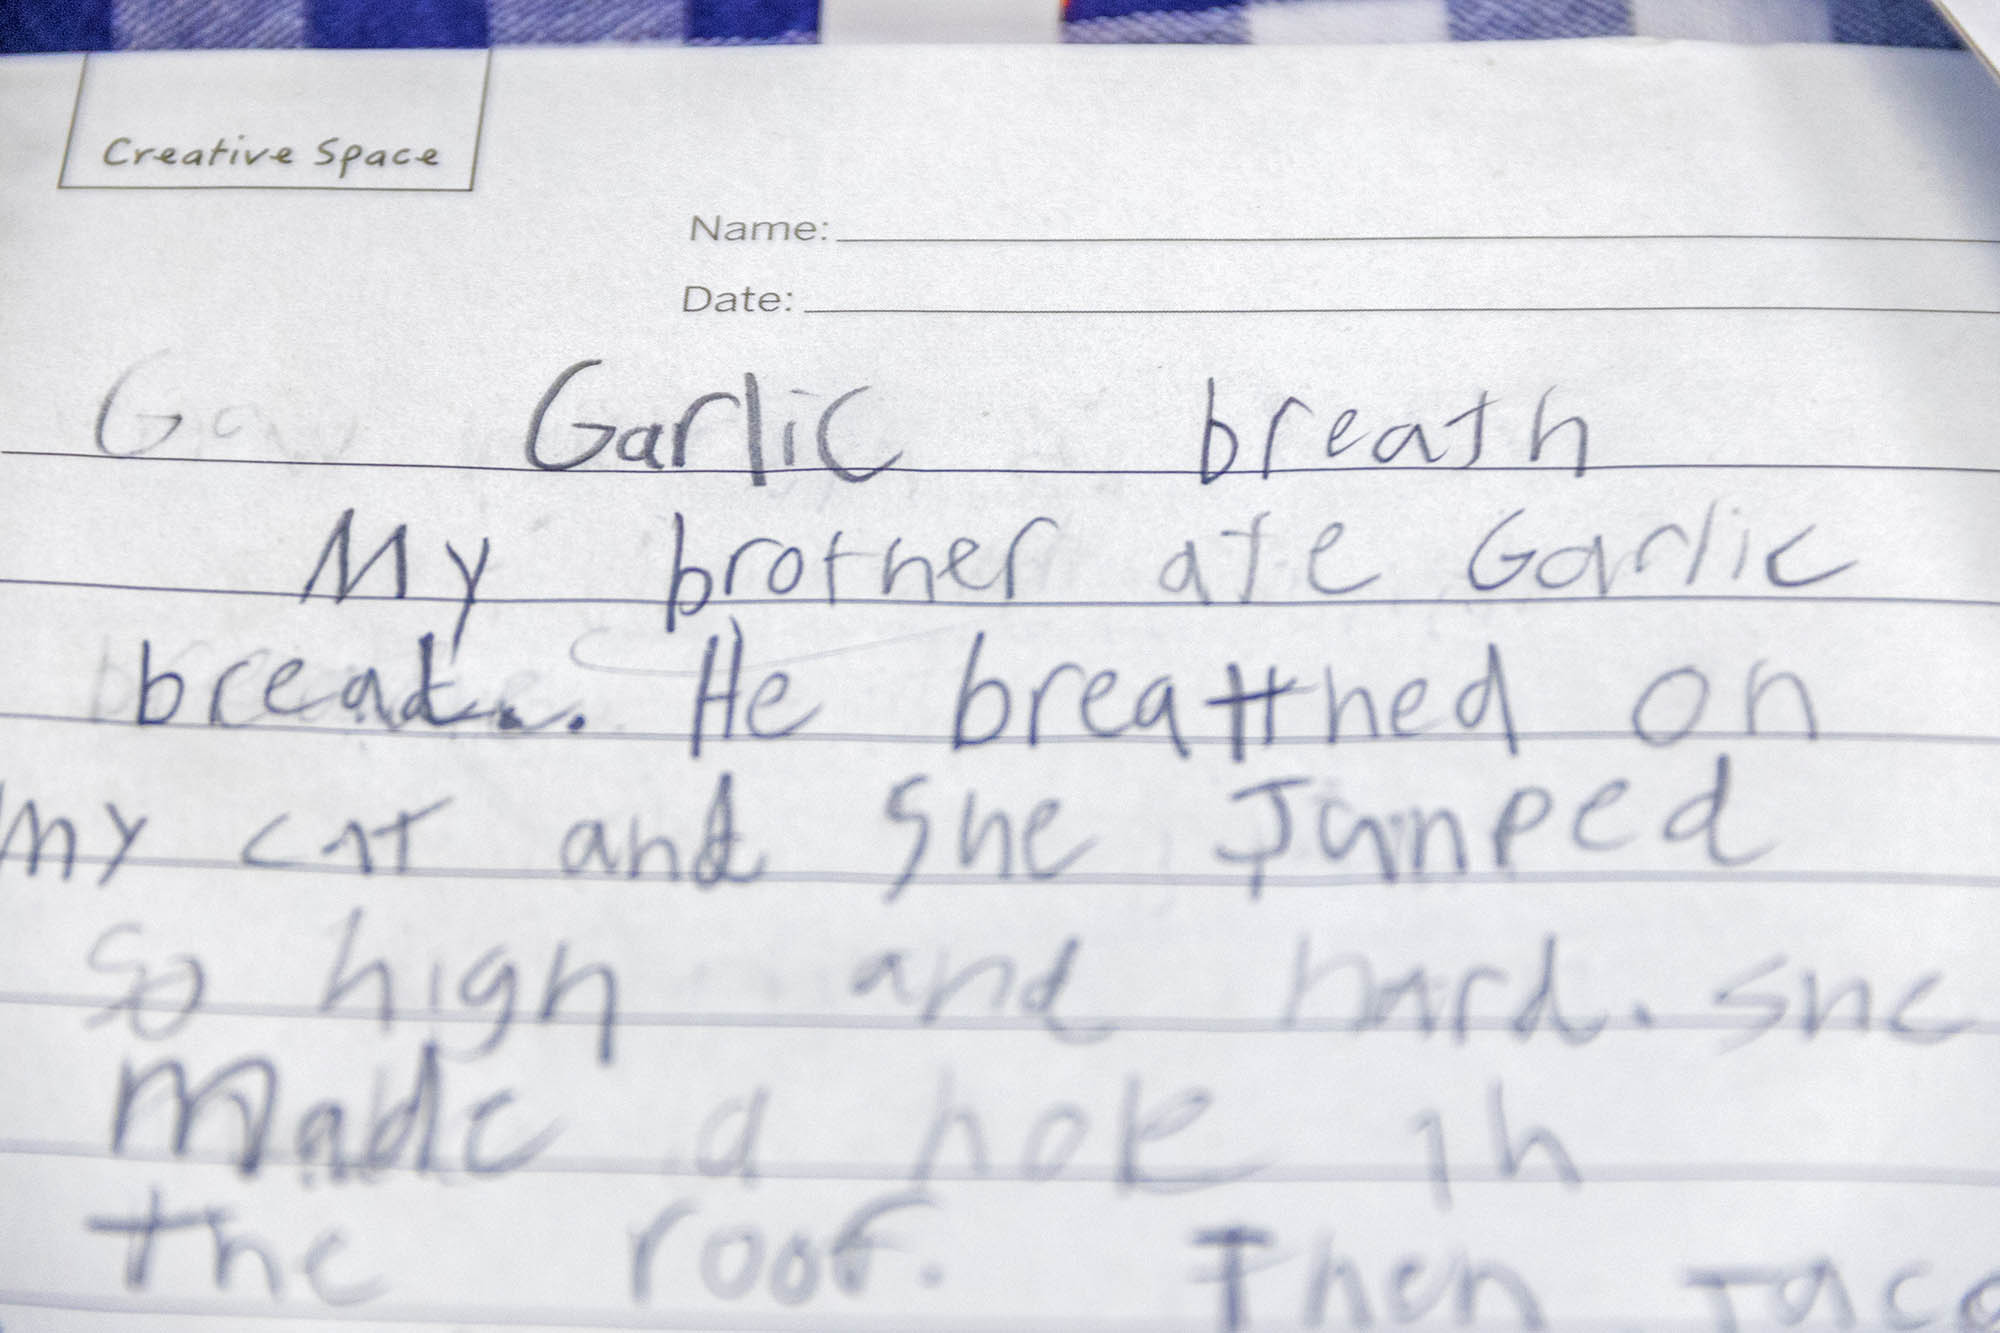 Creative Space
Name:
Date:
Garlic breath
My brother ate Garlic
bread. He breathed on
my cat and she Jumped
so high and hard. she
Made a hole in
the roof. Then